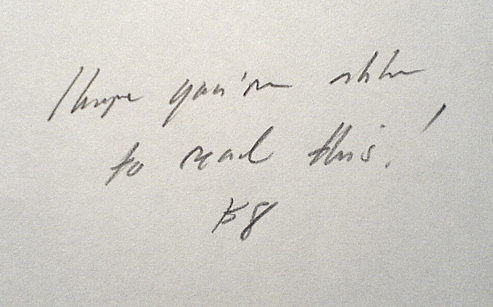 I hope you're able
to read this!